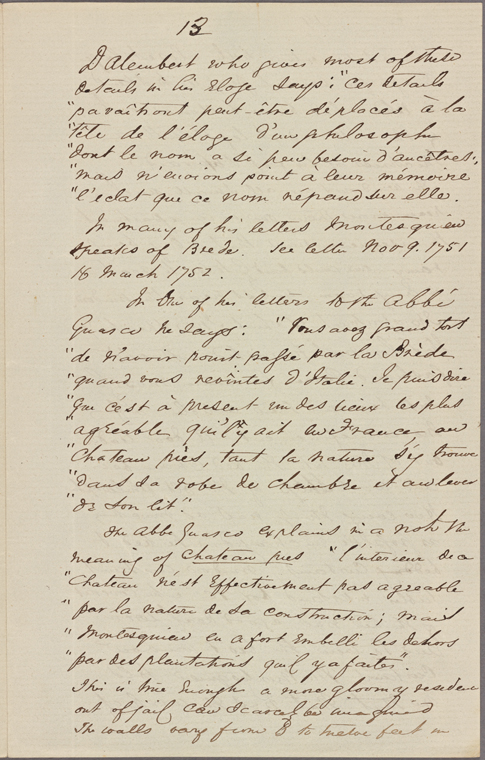 13
D'Alembert who gives most of these
details in his Eloge says: "ces details
"paraîtront peut-être déplacés à la
"tête de l'éloge d'un philosophe
"dont le nom a si peu besoin d'ancêtres;
"mais n'envions point à leur mémoire
"l'eclat que ce nom répand sur elle.
In many of his letters Montesquieu
speaks of Brede. See letter Nov 9. 1751
16 March 1752.
In one of his letters to the Abbé
Guasco he says: "Vous avez grand tort
"de n'avoir point passé par la Brède
"quand vous revintes d'Italie. Je puis dire
"que c'est à present un des lieux les plus
"agréable qu'il y ait en France au
"Chateau près, tant la nature s'y trouve
"dans sa robe de chambre et au lever
"de son lit".
The Abbe Guasco explains in a note the
meaning of Chateau pres "l'interieur de ce
"Chateau n'est effectivement pas agreable
"par la nature de sa construction; mais
"Montesquieu en a fort embelli les dehors
"par des plantations qu'il y a faites".
This is true enough a more gloomy residence
out of jail can scarcely be imagined
The walls vary from 8 to twelve feet in